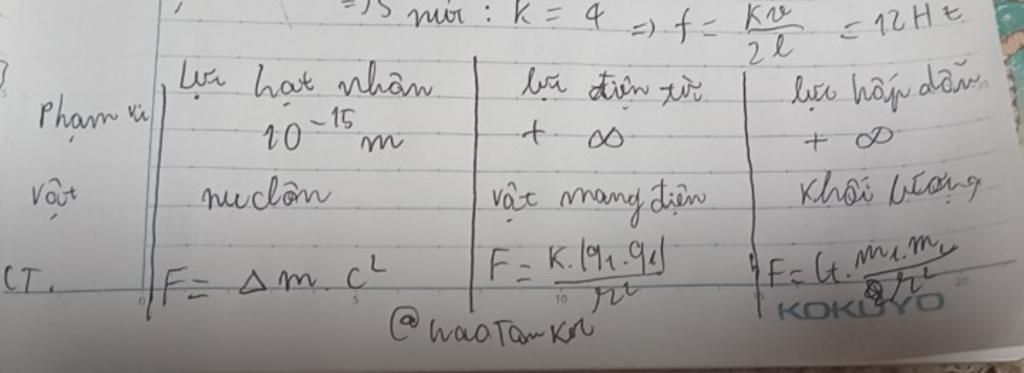 => 5 nút : K = 4 => f = Kv/2l = 12Hz
Lực hạt nhân lực điện từ lực hấp dẫn
Phạm vi 10^-15 m + ∞ + ∞
Vật nuclôn vật mang điện Khối lượng
CT. F = Δm.c² F = K.|q1.q2|/r² F = G.m1.m2/r²
KOKUYO